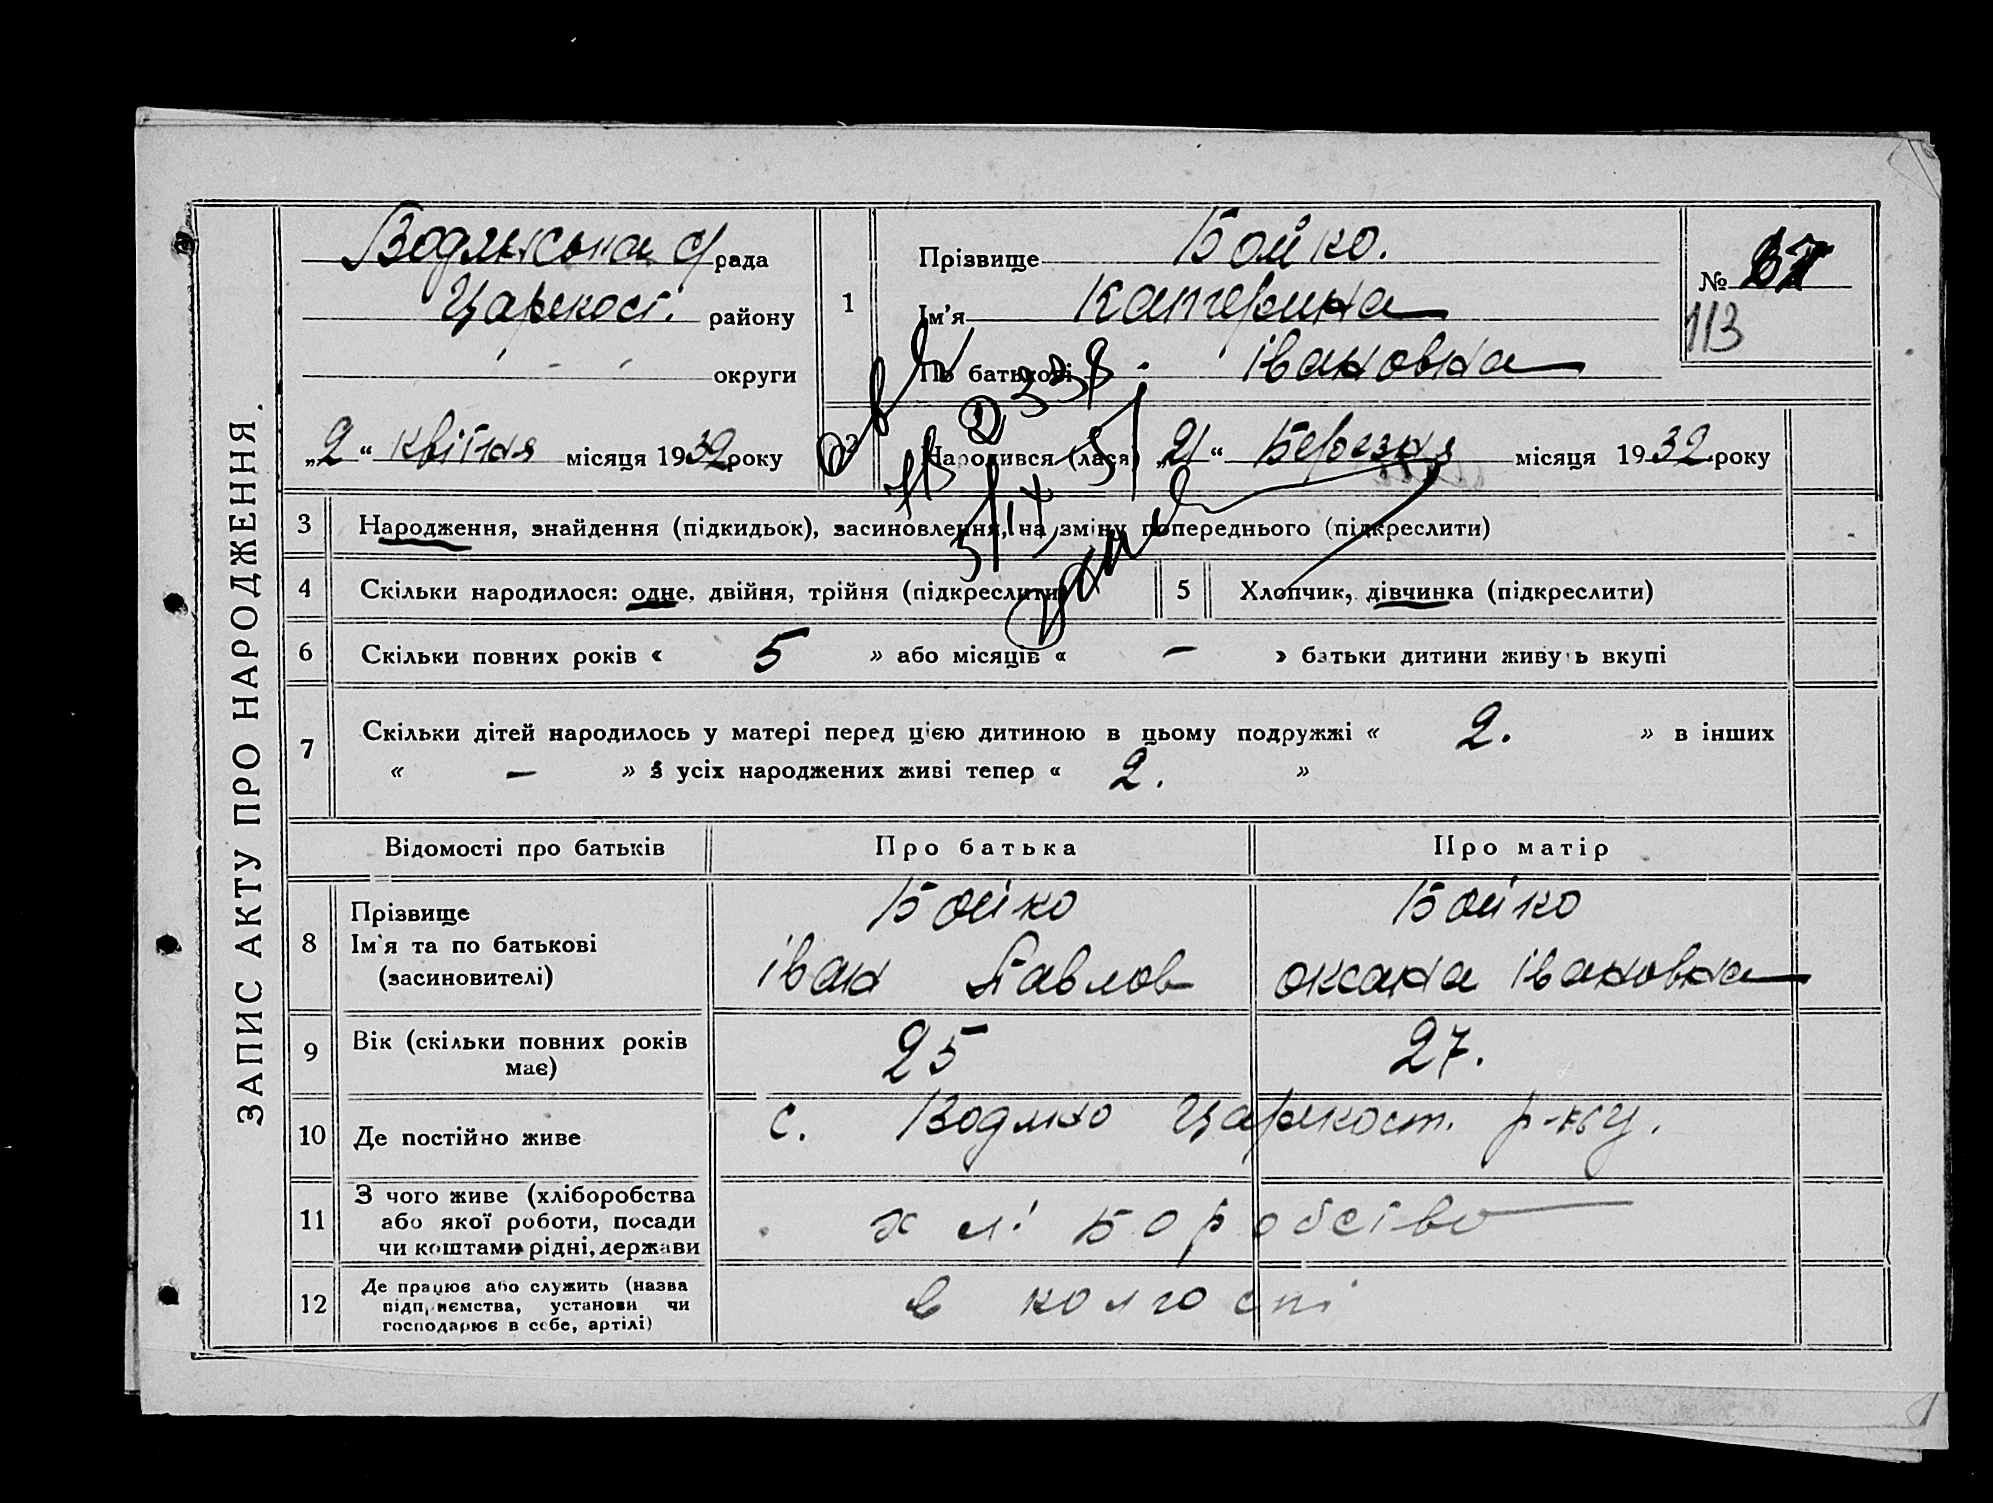 ЗАПИС АКТУ ПРО НАРОДЖЕННЯ.
Водянська с/рада
Царекост. району
округи
„2“ квітня місяця 1932 року
1
Прізвище Бойко.
Ім'я Катерина
По батькові івановна
№
113
2 Народився (лася) „21“ Березня місяця 1932 року
3 Народження, знайдення (підкидьок), засиновлення, на зміну попереднього (підкреслити)
4 Скільки народилося: одне, двійня, трійня (підкреслити)
5 Хлопчик, дівчинка (підкреслити)
6 Скільки повних років « 5 » або місяців « – » батьки дитини живуть вкупі
7 Скільки дітей народилось у матері перед цією дитиною в цьому подружжі « 2. » в інших
« – » З усіх народжених живі тепер « 2. »
Відомості про батьків Про батька Про матір
8 Прізвище
Ім'я та по батькові
(засиновителі)
Бойко
іван Павлов
Бойко
оксана івановна
9 Вік (скільки повних років
має)
25
27.
10 Де постійно живе
с. Водяно Царекост. р-ну.
11 З чого живе (хліборобства
або якої роботи, посади
чи коштами рідні, держави
хліборобство
12 Де працює або служить (назва
підприємства, установи чи
господарює в себе, артілі)
в колгоспі